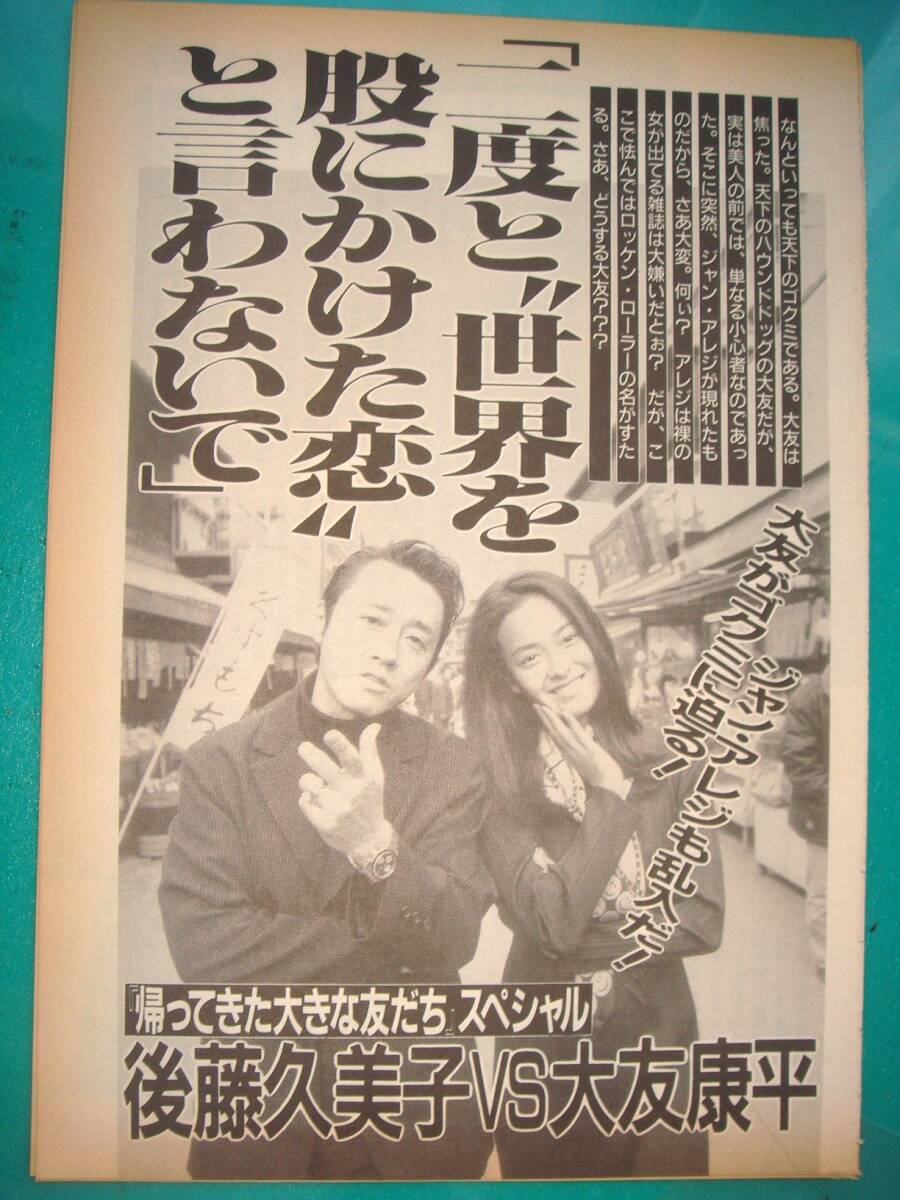 「二度と〝世界を
股にかけた恋〟
と言わないで」
なんといっても天下のゴクミである。大友は
焦った。天下のハウンドドッグの大友だが、
実は美人の前では、単なる小心者なのであっ
た。そこに突然、ジャン・アレジが現れたも
のだから、さあ大変。何ぃ？　アレジは裸の
女が出てる雑誌は大嫌いだとぉ？　だが、こ
こで怯んではロッケン・ローラーの名がすた
る。さあ、どうする大友？？？
ジャン・アレジも乱入だ！
大友がゴクミに迫る！
『帰ってきた大きな友だち』スペシャル
後藤久美子VS大友康平